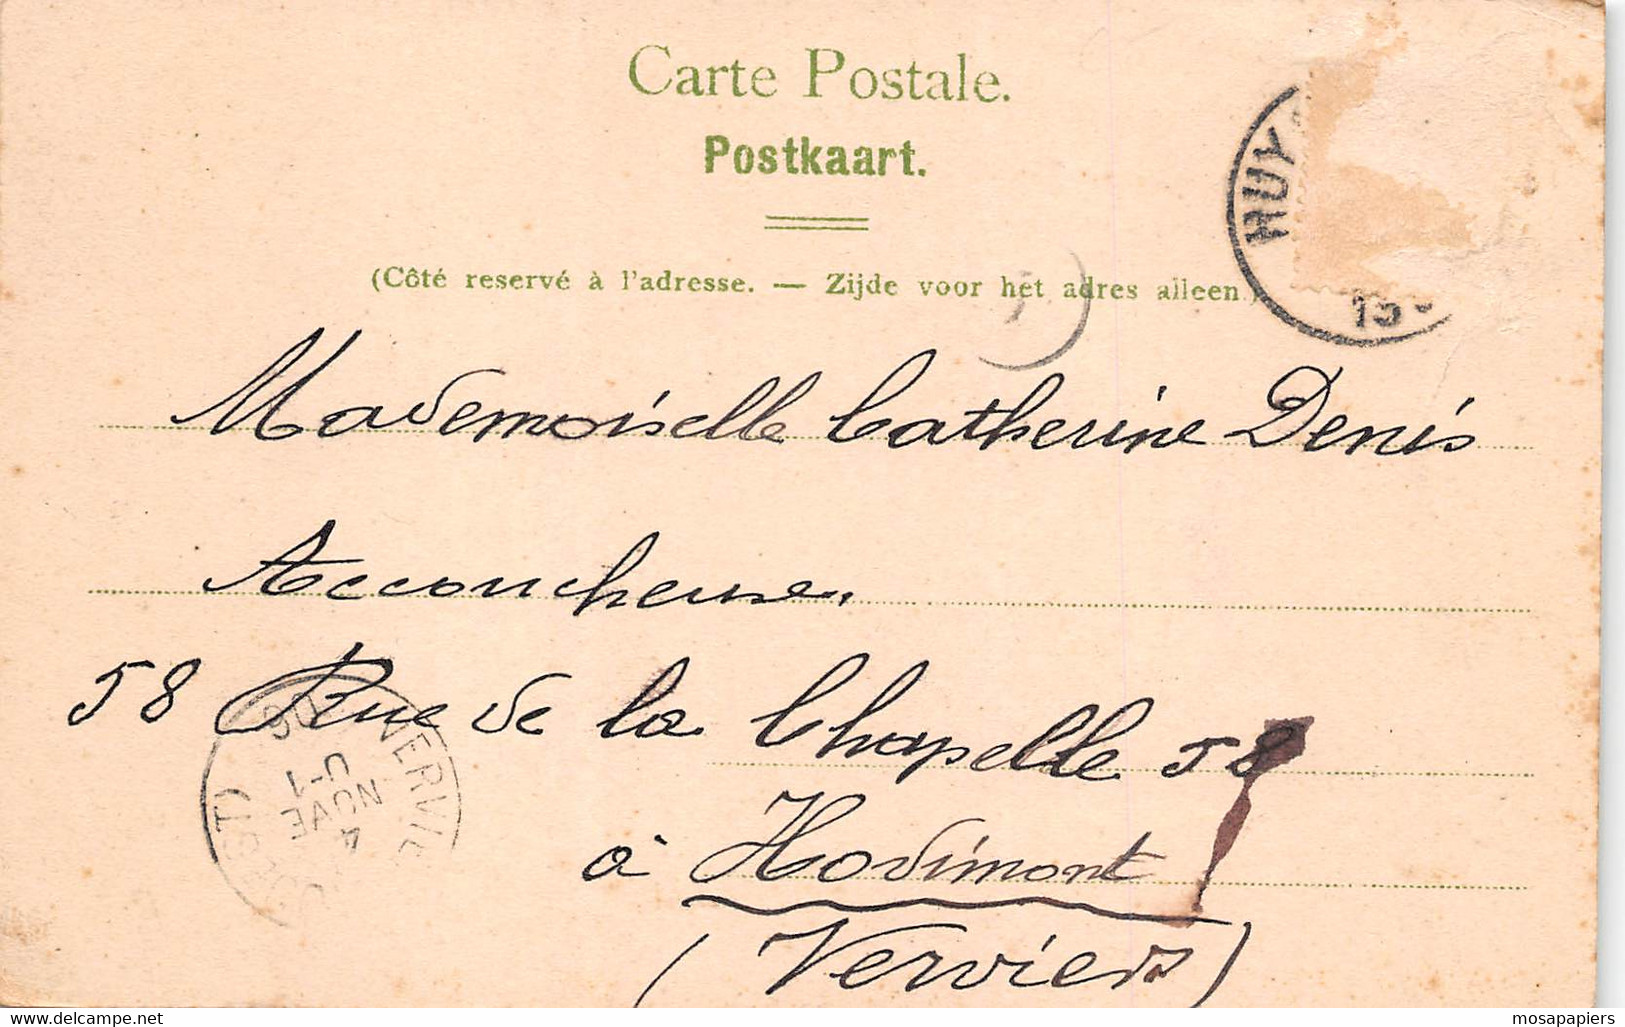 Carte Postale.
Postkaart.
HUY
(Côté reservé à l'adresse. — Zijde voor het adres alleen.)
19
Mademoiselle Catherine Denis
Accoucheuse.
58 Rue de la Chapelle 58
à Hodimont
(Verviers)
VERVIE
(OUEST)
4
NOVE
0-1
06
www.delcampe.net
mosapapiers